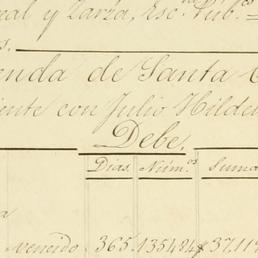 eal y Zarza, Esc. Púb.
s.
enda de Santa
iente con Julio Hilde
Debe.
Dias. Núm.os Suma
a
vencido 365. 135484